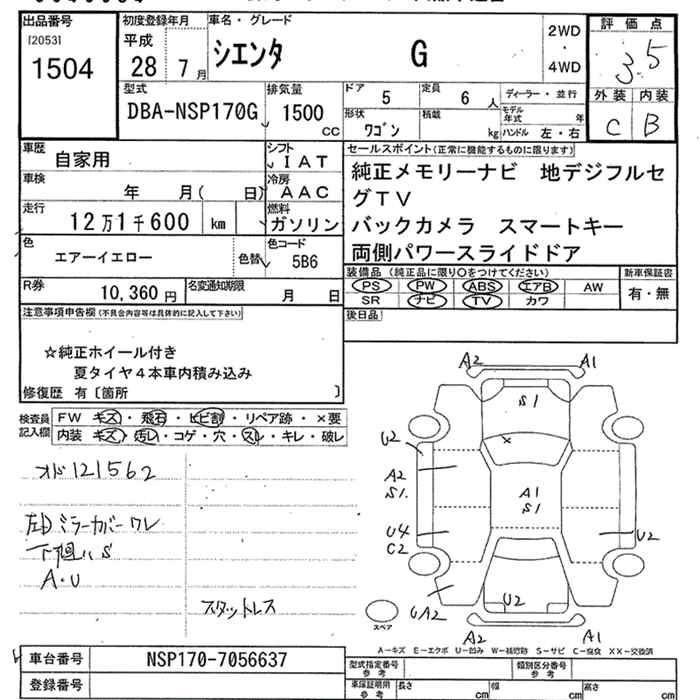 出品番号
[2053]
1504
初度登録年月
平成
28 7 月
車名・グレード
シエンタ G
2WD
・
4WD
評価点
3.5
外装 内装
C B
型式
DBA-NSP170G
排気量
1500
cc
ドア 5
定員 6 人
形状 ワゴン
積載 kg
ディーラー・並行
モデル年式 年
ハンドル 左・右
車歴
自家用
シフト
IAT
車検
年 月( 日)
冷房
AAC
走行
12万1千600 km
燃料
ガソリン
色
エアーイエロー
色替
色コード
5B6
R券
10,360 円
名変通知期限
月 日
セールスポイント(正常に機能するものに限ります)
純正メモリーナビ 地デジフルセ
グTV
バックカメラ スマートキー
両側パワースライドドア
装備品 (純正品に限り〇をつけてください)
新車保証書
PS PW ABS エアB AW
SR ナビ TV カワ
有・無
後日品
注意事項申告欄(不具合内容等は具体的に記入して下さい)
☆純正ホイール付き
夏タイヤ4本車内積み込み
修復歴 有〔箇所 〕
検査員
記入欄
FW キズ・飛石・ヒビ割・リペア跡・×要
内装 キズ・汚レ・コゲ・穴・スレ・キレ・破レ
オド121562
左Dミラーカバーワレ
下廻りS
A・U
スタットレス
A2 A1
S1
×
U2
A2
S1.
A1
S1
U4
C2
U2
U2
UA2
A2 A1
スペア
A-キズ E-エクボ U-凹み W-補修跡 S-サビ C-腐食 XX-交換済
車台番号
NSP170-7056637
登録番号
型式指定番号
参考
類別区分番号
参考
車庫証明用
参考
長さ cm
幅 cm
高さ cm